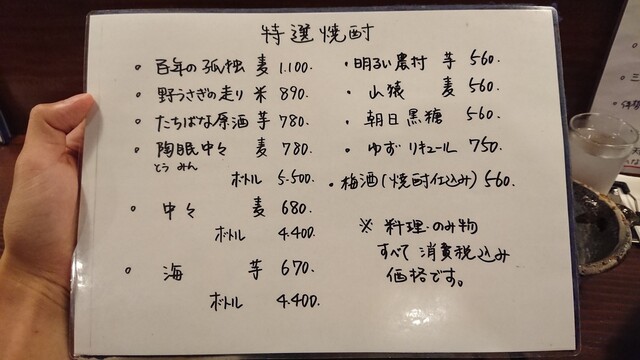 特選焼酎
百年の孤独 麦 1.100.
野うさぎの走り 米 890.
たちばな原酒 芋 780.
陶眠中々 麦 780.
とう みん
ボトル 5.500.
中々 麦 680.
ボトル 4.400.
海 芋 670.
ボトル 4.400.
・明るい農村 芋 560.
・山猿 麦 560.
・朝日 黒糖 560.
・ゆず リキュール 750.
・梅酒(焼酎仕込み) 560.
※ 料理・のみ物
すべて 消費税込み
価格です。